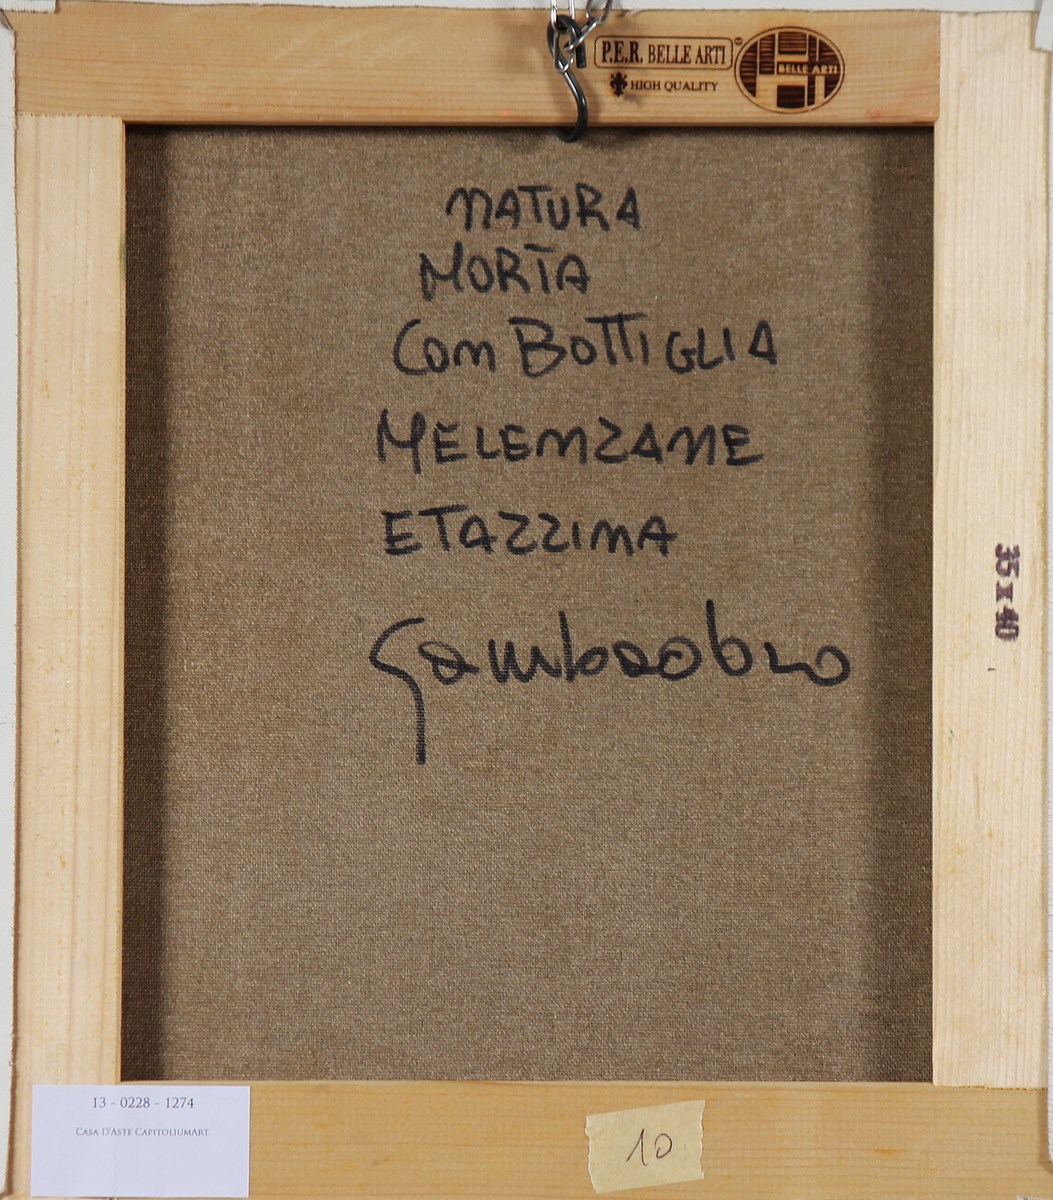 P.E.R. BELLE ARTI
HIGH QUALITY
BELLE ARTI
NATURA
MORTA
CON BOTTIGLIA
MELENZANE
E TAZZINA
35 x 40
13 - 0228 - 1274
CASA D'ASTE CAPITOLIUMART
10